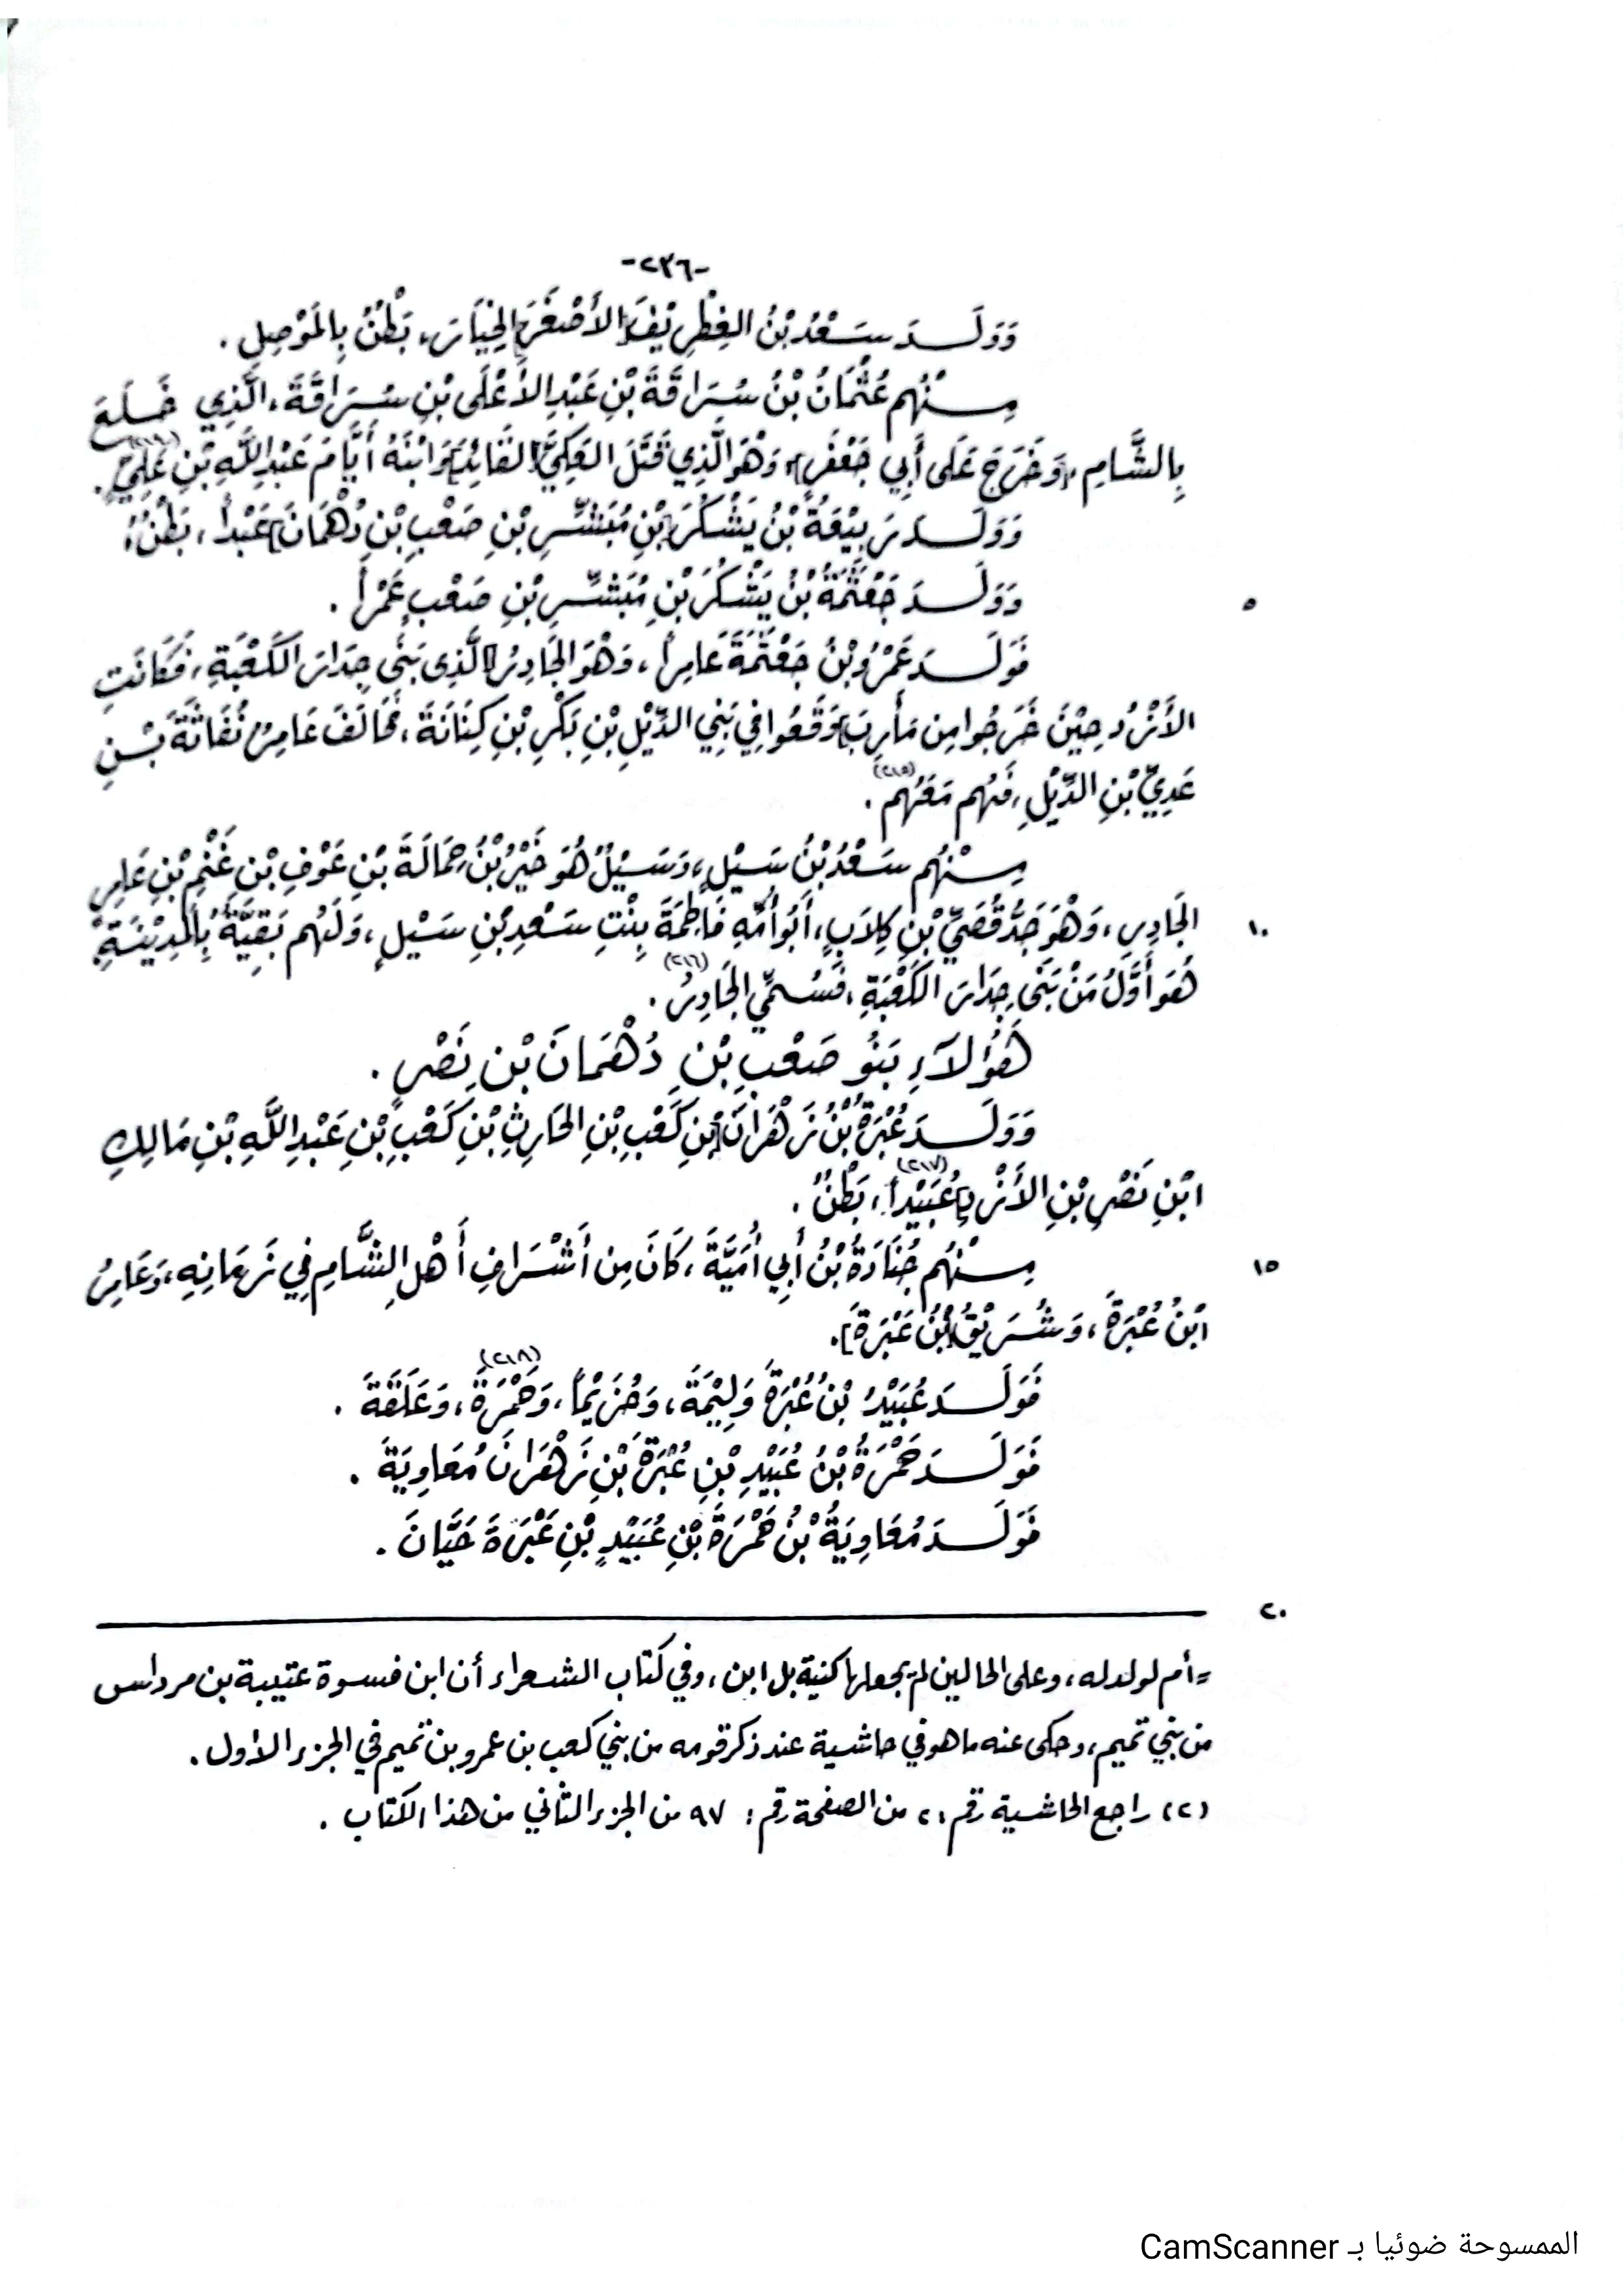 -٢٣٦-
وَوَلَــدَ سَـعْدُ بْنُ الغِطْرِيْفِ [الأَصْغَرِ] الخِيَارَ، بَطْنٌ بِالمَوْصِلِ.
مِـنْهُم عُثْمَانُ بْنُ سُرَاقَةَ بْنِ عَبْدِ الأَعْلَى بْنِ سُـرَاقَةَ، الَّذِي خَـلَعَ
بِالشَّامِ، [وَخَرَجَ عَلَى أَبِي جَعْفَرٍ]، وَهْوَ الَّذِي قَتَلَ العَكِيَّ [القَائِدَ] وَابْنَهُ أَيَّامَ عَبْدِ اللَّهِ بْنِ عَلِيٍّ.
وَوَلَــدَ رَبِيْعَةُ بْنُ يَشْكُرَ [بْنِ مُبَشِّـرِ بْنِ صَعْبِ بْنِ دُهْمَانَ] عَبْداً، بَطْنٌ
وَوَلَــدَ جَعْثَمَةُ بْنُ يَشْكُرَ بْنِ مُبَشِّـرِ بْنِ صَعْبٍ عَمْراً.
٥
فَوَلَــدَ عَمْرُو بْنُ جَعْثَمَةَ عَامِراً، وَهْوَ الجَادِرُ الَّذِي بَنَى جِدَارَ الكَعْبَةِ، فَكَانَتِ
الأَزْدُ حِيْنَ خَرَجُوا مِن مَأْرِبَ [وَقَعُوا فِي بَنِي الدِّيْلِ بْنِ بَكْرِ بْنِ كِنَانَةَ، فَحَالَفَ عَامِرٌ نُفَاثَةَ بْـنِ
عَدِيِّ بْنِ الدِّيْلِ، فَهُم مَعَهُم (٢١٥).
مِـنْهُم سَـعْدُ بْنُ سَـيْلٍ، وَسَـيْلٌ هُوَ خَيْرُ بْنُ حَمَالَةَ بْنِ عَوْفِ بْنِ غَنْمِ بْنِ عَامِرٍ
الجَادِرِ، وَهْوَ جَدُّ قُصَيِّ بْنِ كِلاَبٍ، أَبُو أُمِّهِ فَاطِمَةَ بِنْتِ سَـعْدِ بْنِ سَـيْلٍ، وَلَهُم بَقِيَّةٌ بِالمَدِيْنَةِ،
١٠
هُوَ أَوَّلُ مَنْ بَنَى جِدَارَ الكَعْبَةِ، فَسُـمِّيَ الجَادِرُ (٢١٦).
هَؤُلآءِ بَنُو صَعْبِ بْنِ دُهْمَانَ بْنِ نَصْرٍ.
وَوَلَــدَ عُبْرَةُ بْنُ زَهْرَانَ [بْنِ كَعْبِ بْنِ الحَارِثِ بْنِ كَعْبِ بْنِ عَبْدِ اللَّهِ بْنِ مَالِكِ
ابْنِ نَصْرِ بْنِ الأَزْدِ] عُبَيْداً (٢١٧)، بَطْنٌ.
مِـنْهُم جُنَادَةُ بْنُ أَبِي أُمَيَّةَ، كَانَ مِن أَشْرَافِ أَهْلِ الشَّامِ فِي زَمَانِهِ، وَعَامِرُ
١٥
ابْنُ عُبْرَةَ، وَشُـرَيْقُ [بْنُ عَبْرَةَ].
فَوَلَــدَ عُبَيْدُ بْنُ عُبْرَةَ وَلِيْمَةَ، وَحُزَيْماً، وَحَمْرَةَ (٢١٨)، وَعَلَقَةَ.
فَوَلَــدَ حَمْرَةُ بْنُ عُبَيْدِ بْنِ عُبْرَةَ بْنِ زَهْرَانَ مُعَاوِيَةَ.
فَوَلَــدَ مُعَاوِيَةُ بْنُ حَمْرَةَ بْنِ عُبَيْدِ بْنِ عَبْرَةَ حَيَّانَ.
٢٠
= أم لولد له، وعلى الحالين لم يجعلها كنية بل ابن، وفي كتاب الشعراء أن ابن فسوة عتيبة بن مرداس
من بني تميم، وحكى عنه ما هو في حاشية عند ذكر قومه من بني كعب بن عمرو بن تميم في الجزء الأول.
(٢) راجع الحاشية رقم: ٢ من الصفحة رقم: ٩٧ من الجزء الثاني من هذا الكتاب.
الممسوحة ضوئيا بـ CamScanner